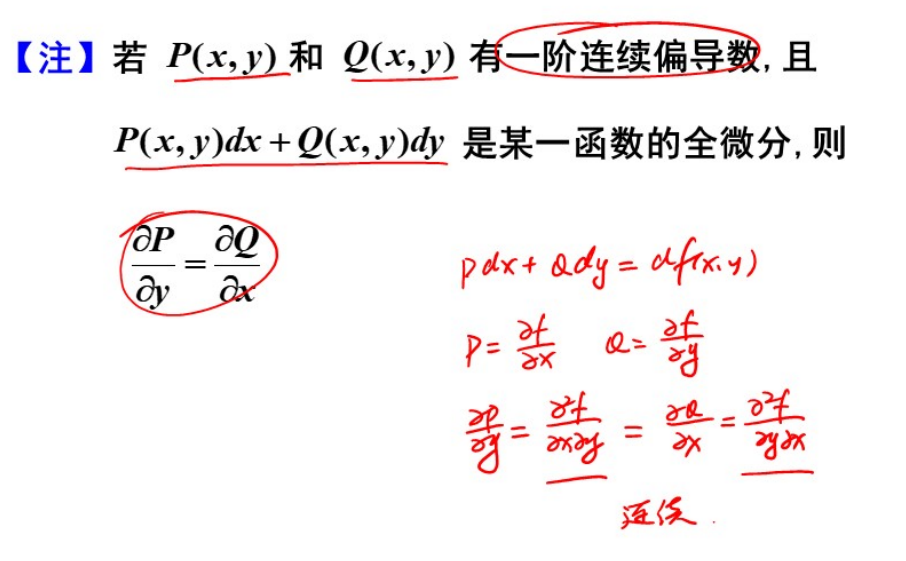 【注】若 P(x,y) 和 Q(x,y) 有一阶连续偏导数,且
P(x,y)dx+Q(x,y)dy 是某一函数的全微分,则
∂P/∂y = ∂Q/∂x
Pdx+Qdy=df(x,y)
P=∂f/∂x Q=∂f/∂y
∂P/∂y = ∂²f/∂x∂y = ∂Q/∂x = ∂²f/∂y∂x
连续.